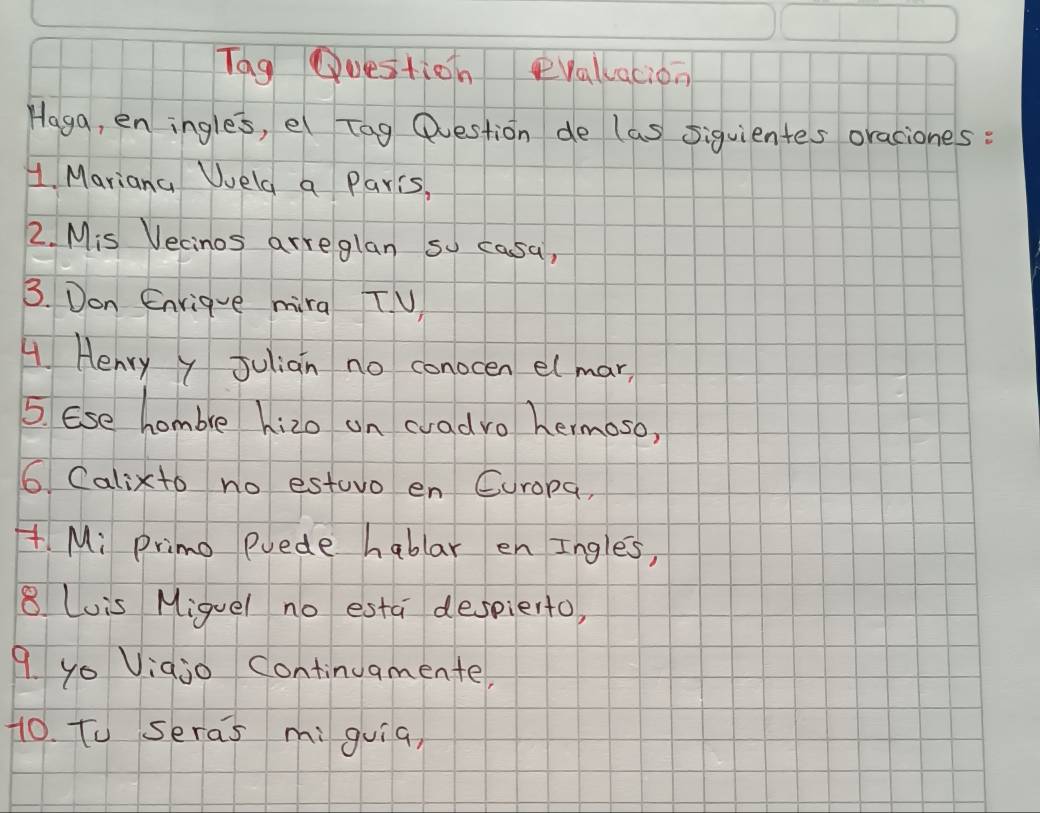 Tag Question evaluación
Haga, en inglés, el Tag Question de las siguientes oraciones:
1. Mariana Vuela a París,
2. Mis Vecinos arreglan su casa,
3. Don Enrique mira T.V,
4. Henry y Julián no conocen el mar,
5. Ese hombre hizo un cuadro hermoso,
6. Calixto no estuvo en Europa,
7. Mi primo Puede hablar en Inglés,
8. Luis Miguel no está despierto,
9. yo Viajo Continuamente,
10. Tu serás mi guía,